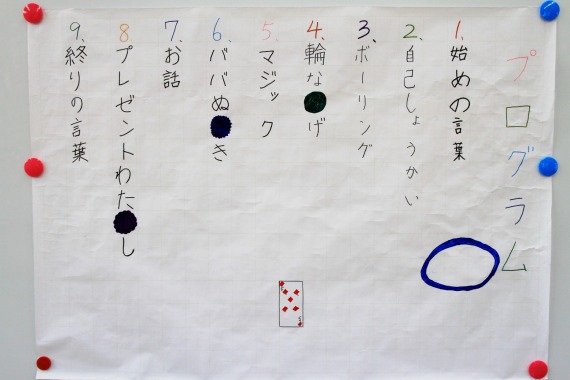 プログラム
1. 始めの言葉
2. 自己しょうかい
3、ボーリング
4. 輪なげ
5. マジック
6、ババぬき
7、お話
8 プレゼントわたし
9、終りの言葉